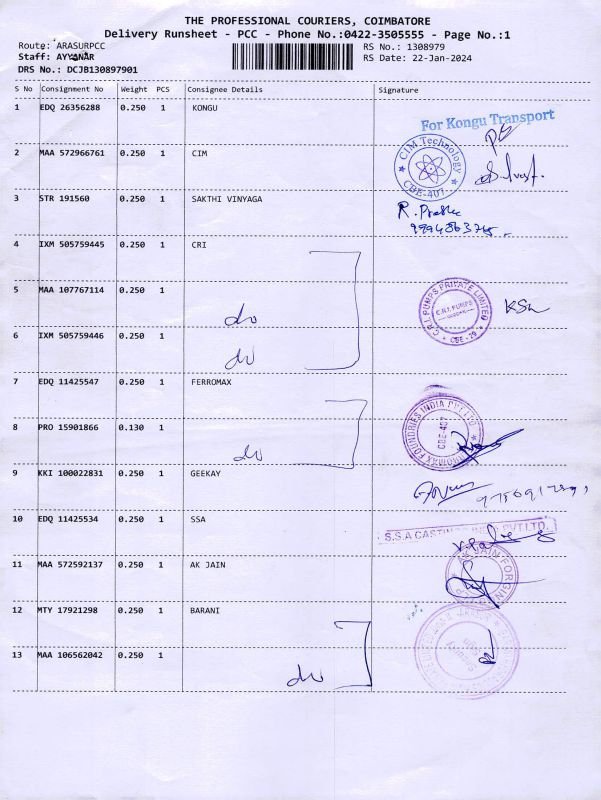 THE PROFESSIONAL COURIERS, COIMBATORE
Delivery Runsheet - PCC - Phone No.:0422-3505555 - Page No.:1
Route: ARASURPCC RS No.: 1308979
Staff: AYYANAR RS Date: 22-Jan-2024
DRS No.: DCJB130897901
S No Consignment No Weight PCS Consignee Details Signature
1 EDQ 26356288 0.250 1 KONGU
For Kongu Transport
2 MAA 572966761 0.250 1 CIM
CIM Technology
CBE-407.
3 STR 191560 0.250 1 SAKTHI VINYAGA
4 IXM 505759445 0.250 1 CRI
5 MAA 107767114 0.250 1
do
C.R.I. PUMPS PRIVATE LIMITED
C.R.I. PUMPS
CBE - 29
6 IXM 505759446 0.250 1
do
7 EDQ 11425547 0.250 1 FERROMAX
FOUNDRIES INDIA PVT LTD
CBE-407
8 PRO 15901866 0.130 1
do
9 KKI 100022831 0.250 1 GEEKAY
10 EDQ 11425534 0.250 1 SSA
S.S.A CASTINGS PVT.LTD.
11 MAA 572592137 0.250 1 AK JAIN
JAIN FORGIN
12 MTY 17921298 0.250 1 BARANI
13 MAA 106562042 0.250 1
do